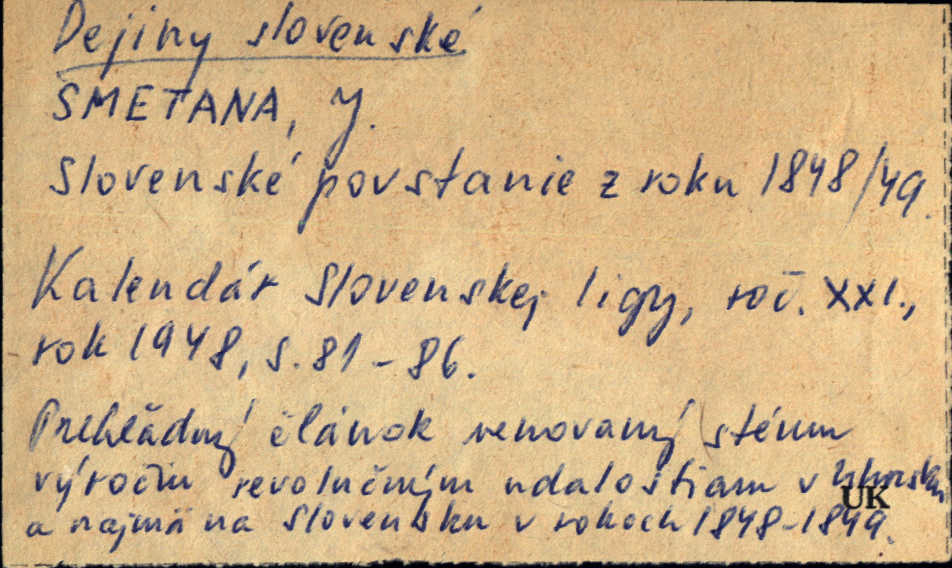 Dejiny slovenské
SMETANA, J.
Slovenské povstanie z roku 1848/49.
Kalendár Slovenskej ligy, roč. XXI.,
rok 1948, s. 81-86.
Prehľadný článok venovaný stému
výročiu revolučným udalostiam v Uhorsku
UK
a najmä na Slovensku v rokoch 1848-1849.